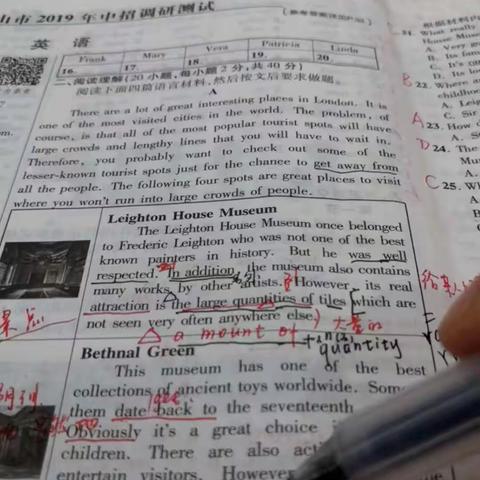 山市 2019 年中招调研测试
英 语
Frank Mary Vera Patricia Linda
16. 17. 18. 19. 20.
二、阅读理解(20 小题,每小题 2 分,共 40 分)
阅读下面四篇语言材料,然后按文后要求做题。
A
There are a lot of great interesting places in London. It is
one of the most visited cities in the world. The problem, of
course, is that all of the most popular tourist spots will have
large crowds and lengthy lines that you will have to wait in.
Therefore, you probably want to check out some of the
lesser-known tourist spots just for the chance to get away from
all the people. The following four spots are great places to visit
where you won't run into large crowds of people.
Leighton House Museum
The Leighton House Museum once belonged
to Frederic Leighton who was not one of the best
known painters in history. But he was well
respected. In addition, the museum also contains
many works by other artists. However, its real
attraction is the large quantities of tiles which are
not seen very often anywhere else.
大量的
a mount of
quantity
景点
Bethnal Green
This museum has one of the best
collections of ancient toys worldwide. Som
them date back to the seventeenth
Obviously it's a great choice
children. There are also acti
entertain visitors. However
根据材料内
21. What really
House Muse
A. Very gr
B. Its fam
C. It's ran
D. Its lo
B 22. Where a
childhoo
A. Leig
C. Sir
A 23. How
A. S
D 24. The
Mus
A.
C 25. Wh
A
B